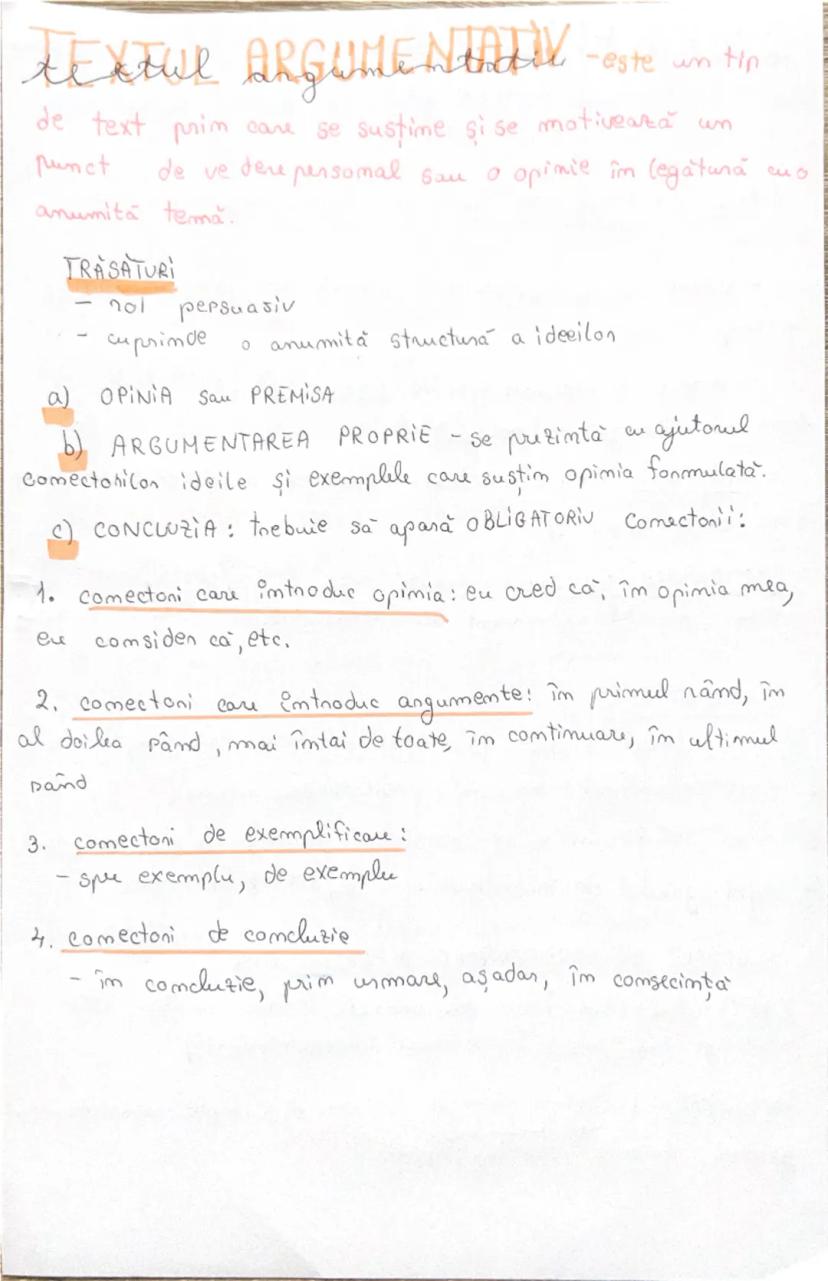 TEXTUL ARGUMENTATIV
textul argumentativ - este un tip
de text prin care se susține și se motivează un
punct de vedere personal sau o opinie în legătură cu o
anumită temă.
TRĂSĂTURI
- rol persuasiv
- cuprinde o anumită structură a ideeilor
a) OPINIA sau PREMISA
b) ARGUMENTAREA PROPRIE - se prezintă cu ajutorul
conectorilor ideile și exemplele care susțin opinia formulată.
c) CONCLUZIA: trebuie să apară OBLIGATORIU conectorii:
1. conectori care introduc opinia: eu cred că, în opinia mea,
eu consider că, etc.
2. conectori care introduc argumente: în primul rând, în
al doilea rând, mai întai de toate, în continuare, în ultimul
rând
3. conectori de exemplificare:
- spre exemplu, de exemplu
4. conectori de concluzie
- în concluzie, prin urmare, așadar, în consecință